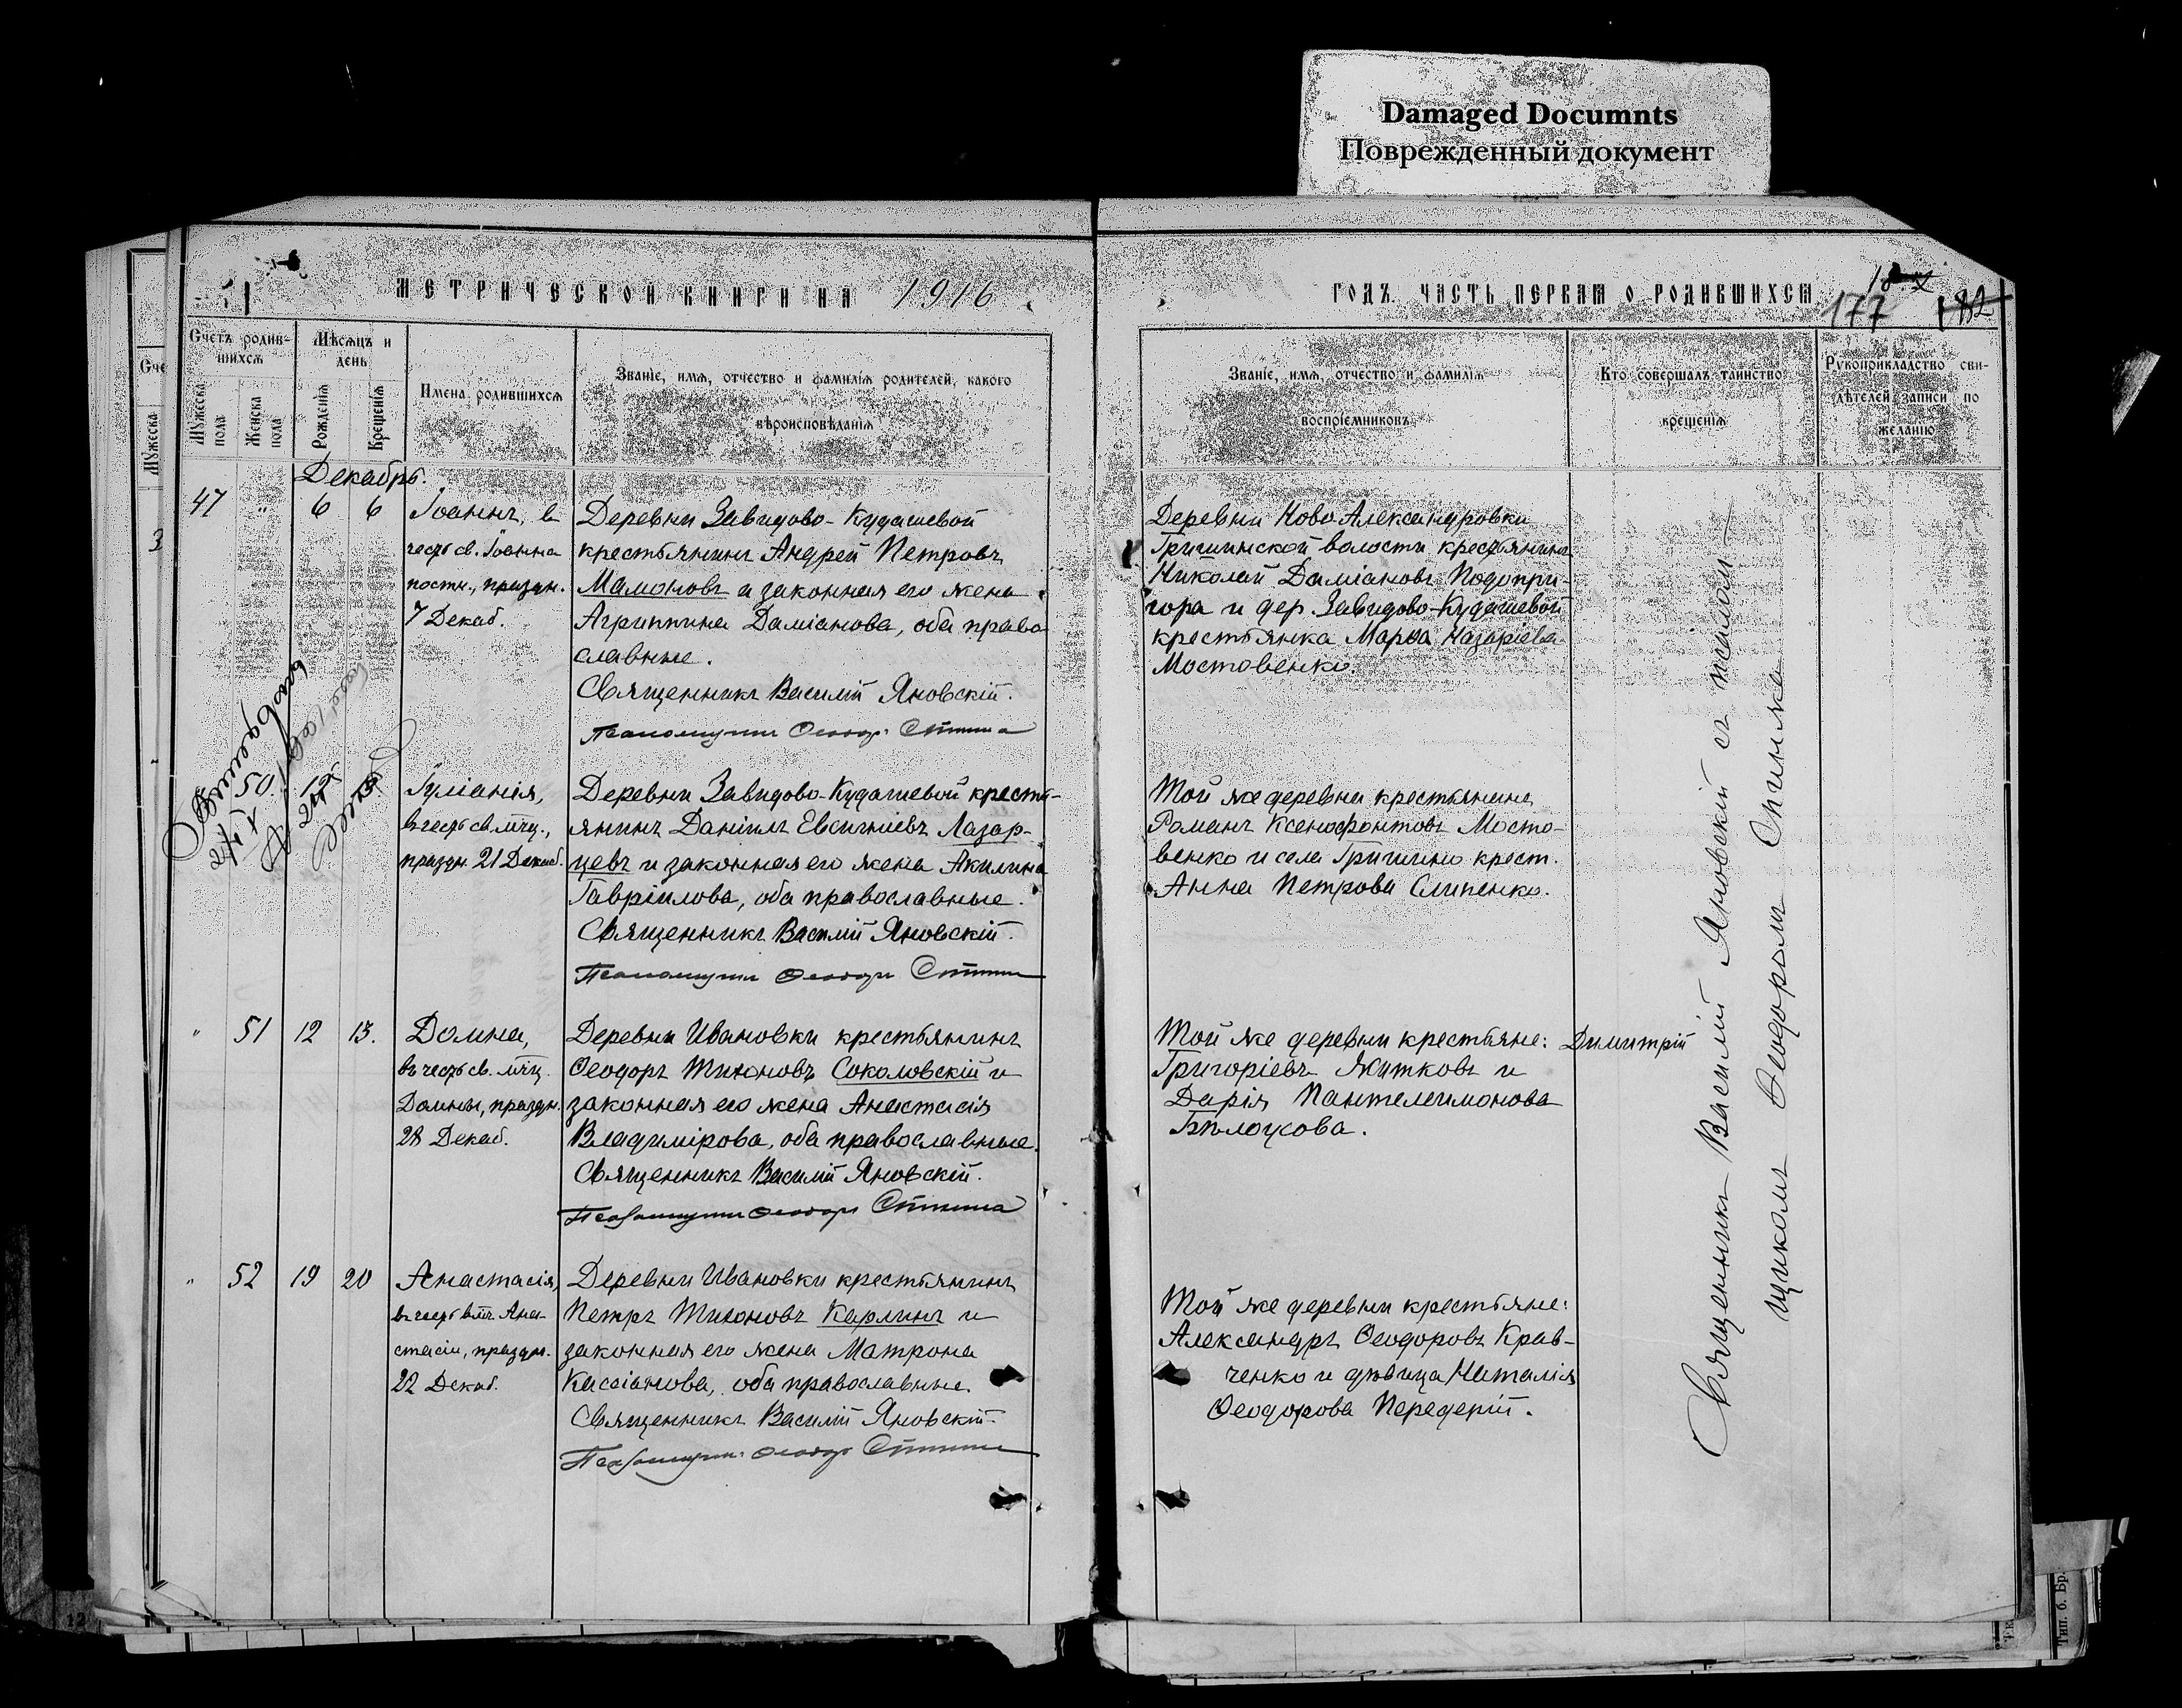 Damaged Documnts
Поврежденный документ
МЕТРИЧЕСКОЙ КНИГИ НА 1916
Счетъ родив-
шихся
Мѣсяцъ и
день
Мужеска
пола
Женска
пола
Рожденія
Крещенія
Имена родившихся
Званіе, имя, отчество и фамилія родителей, какого
вѣроисповѣданія
Декабрь.
47 " 6 6
Іоаннъ, въ
честь св. Іоанна
постн., праздн.
7 Декаб.
Деревни Завидово-Кудашевой
крестьянинъ Андрей Петровъ
Мамоновъ и законная его жена
Агриппина Даміанова, оба право
славные.
Священникъ Василій Яновскій.
Псаломщикъ Ѳеодоръ
50. 12 13
Іуліанія,
въ честь св. мчц.,
праздн. 21 Декаб.
Деревни Завидово-Кудашевой кресть-
янинъ Даніилъ Евсигніевъ Лазар-
цевъ и законная его жена Акилина
Гавріилова, оба православные.
Священникъ Василій Яновскій.
Псаломщикъ Ѳеодоръ
" 51 12 13.
Домна,
въ честь св. мчц.
Домны, праздн.
28 Декаб.
Деревни Ивановки крестьянинъ
Ѳеодоръ Тихоновъ Соколовскій и
законная его жена Анастасія
Владимірова, оба православные.
Священникъ Василій Яновскій.
Псаломщикъ Ѳеодоръ
" 52 19 20
Анастасія,
въ честь вмч. Ана-
стасіи, праздн.
22 Декаб.
Деревни Ивановки крестьянинъ
Петръ Тихоновъ Карлинъ и
законная его жена Матрона
Кассіанова, оба православные.
Священникъ Василій Яновскій.
Псаломщикъ Ѳеодоръ
ГОДЪ. ЧАСТЬ ПЕРВАЯ О РОДИВШИХСЯ
177 182
Званіе, имя, отчество и фамилія
воспріемниковъ
Кто совершалъ таинство
крещенія
Рукоприкладство сви-
дѣтелей записи по
желанію
Деревни Ново Александровки
Гришинской волости крестьянинъ
Николай Даміановъ Подопри-
гора и дер. Завидово-Кудашевой
крестьянка Марѳа Назаріева
Мостовенко.
Той же деревни крестьянинъ
Романъ Ксенофонтовъ Мосто-
венко и села Гришино крест.
Анна Петрова Слипенко.
Той же деревни крестьяне: Димитрій
Григоріевъ Житковъ и
Дарія Пантелеимонова
Бѣлоусова.
Той же деревни крестьяне:
Александръ Ѳеодоровъ Крав-
ченко и дѣвица Наталія
Ѳеодорова Передерій.
Священникъ Василій Яновскій съ псалом-
щикомъ Ѳеодоромъ
Тип. б. Бр.